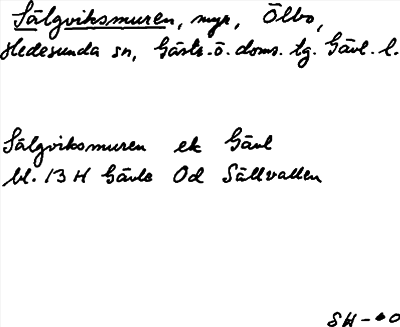 Sälgviksmuren, myr, Ölbo,
Hedesunda sn, Gästr.ö.doms. tg. Gävl. l.
Sälgviksmuren ek Gävl
bl. 13 H Gävle Od Sällvallen